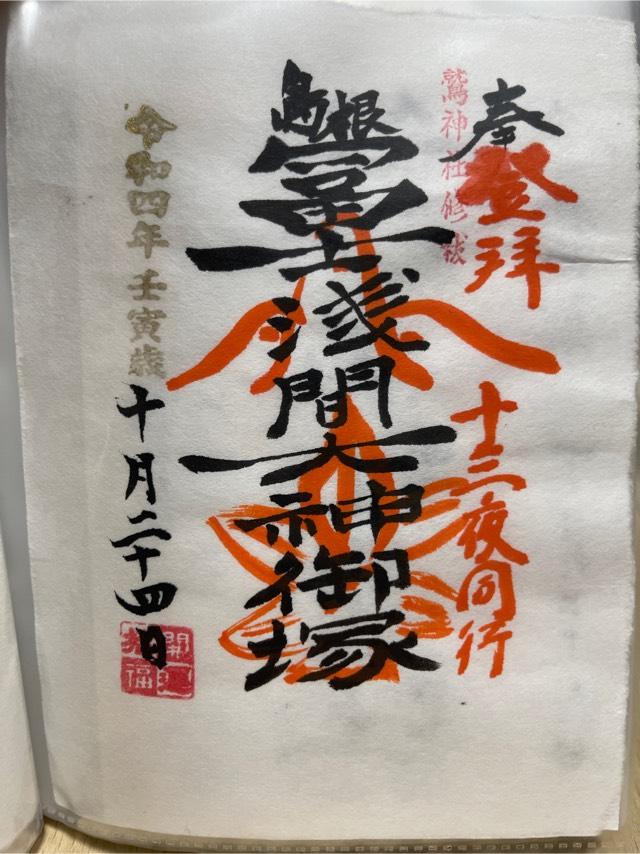 奉登拝
十三夜同行
鷲神社修祓
島根
冨士浅間大神御塚
令和四年壬寅歳
十月二十四日
開運
招福